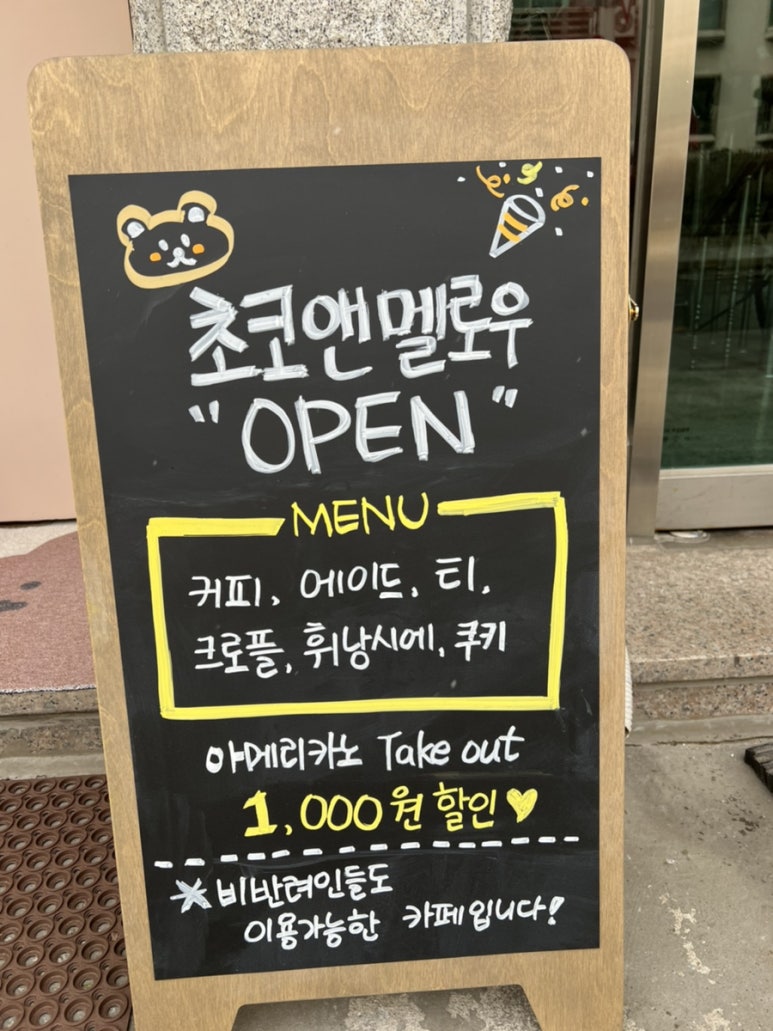 초코앤멜로우
"OPEN"
MENU
커피, 에이드, 티,
크로플, 휘낭시에, 쿠키
아메리카노 Take out
1,000원 할인♥
※비반려인들도
이용가능한 카페입니다!